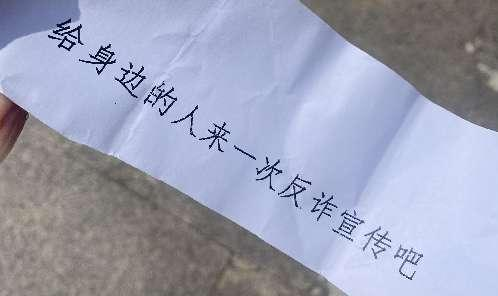 给身边的人来一次反诈宣传吧